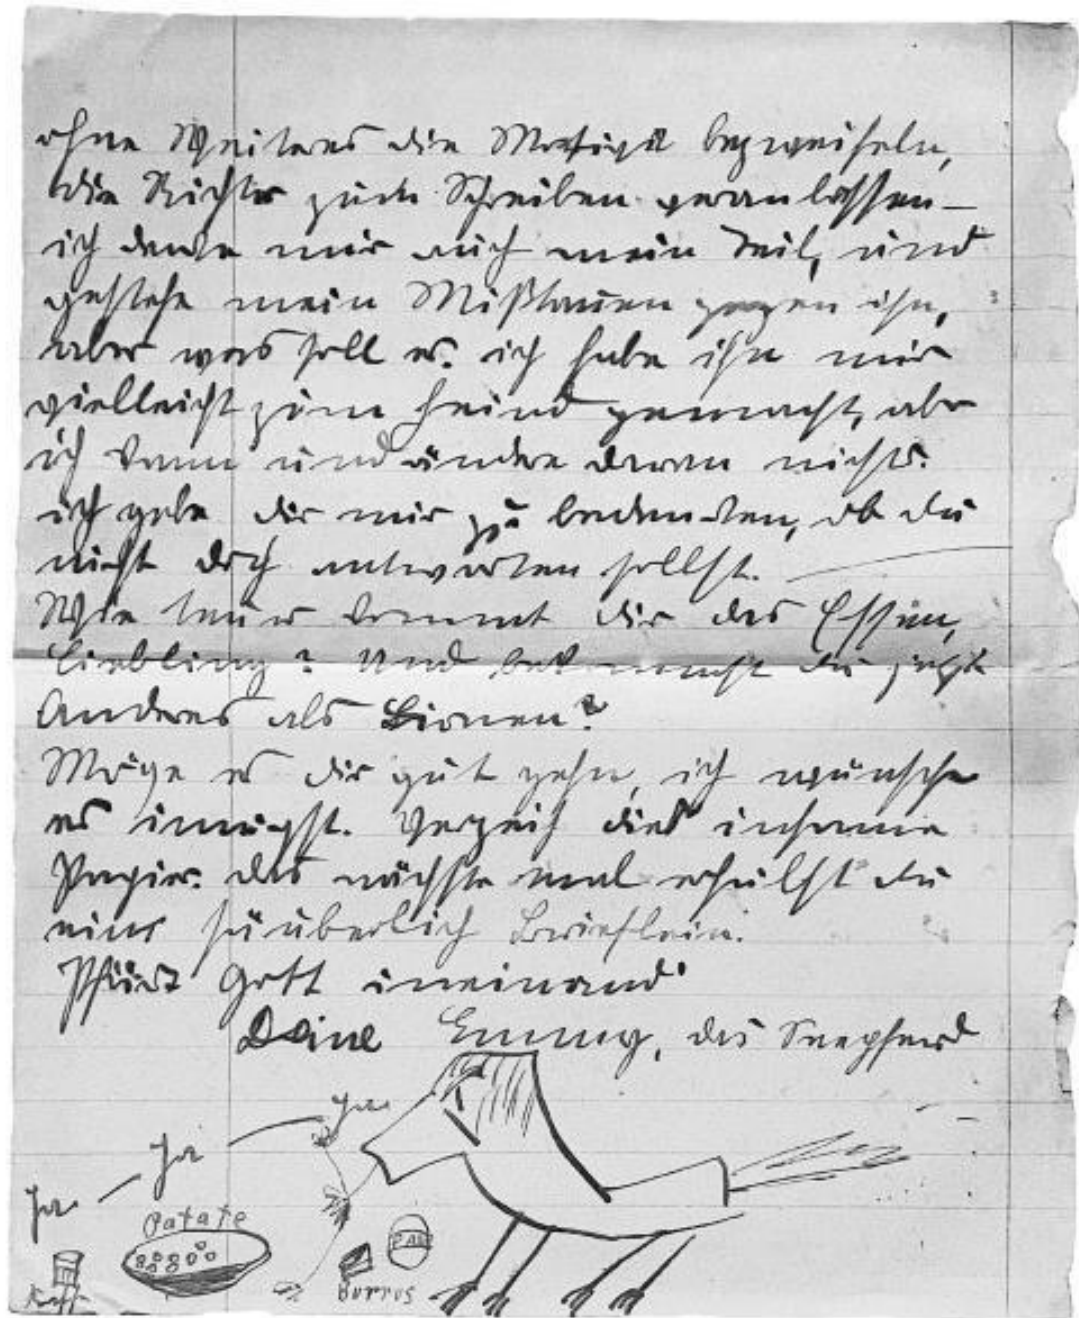 ohne Weiteres die Motive bezweifeln,
die Richter zum Schreiben veranlassen –
ich denke mir auch mein Teil, und
gestehe mein Mißtrauen gegen ihn,
aber was soll es. ich habe ihn mir
vielleicht zum Feind gemacht, aber
ich kann und ändre daran nichts.
ich gebe dir nur zu bedenken, ob du
nicht doch antworten sollst. —
Wie teuer kommt dir das Essen,
Liebling? Und bekommst du jetzt
Anderes als Birnen?
Möge es dir gut gehn, ich wünsche
es innigst. Verzeih dies infame
Papier. das nächste mal erhältst du
eins säuberlich Brieflein.
Pfüat Gott ineinand'
Deine Emmy, das Seepferd
Ja — Ja — Ja
Patate
Burros